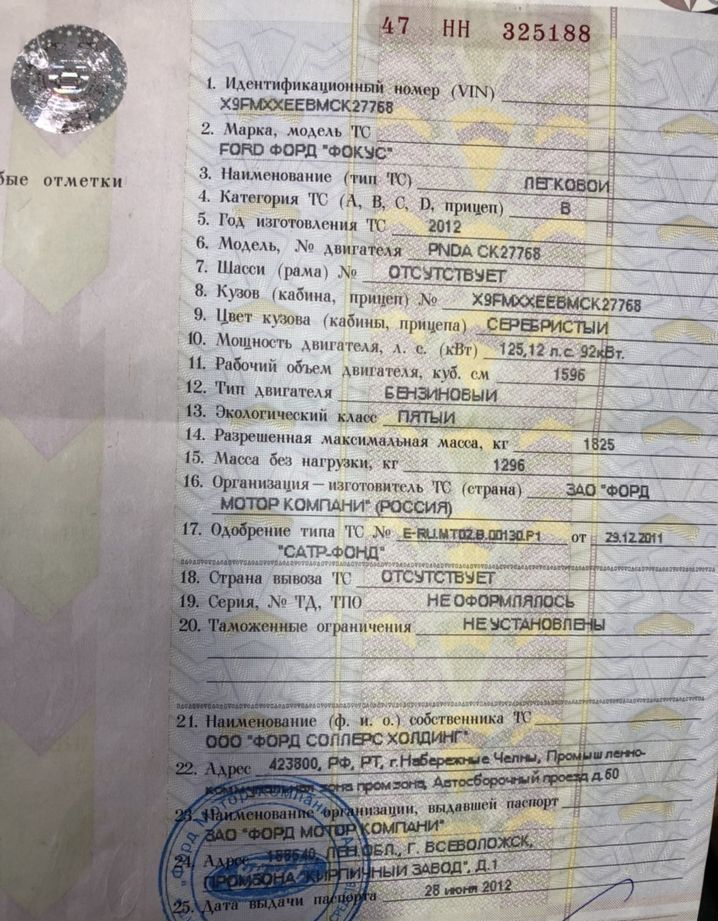 47 НН 325188
1. Идентификационный номер (VIN)
X9FMXXEEBMCK27768
2. Марка, модель ТС
FORD ФОРД "ФОКУС"
бые отметки
3. Наименование (тип ТС) ЛЕГКОВОЙ
4. Категория ТС (А, В, С, D, прицеп) В
5. Год изготовления ТС 2012
6. Модель, № двигателя PNDA CK27768
7. Шасси (рама) № ОТСУТСТВУЕТ
8. Кузов (кабина, прицеп) № X9FMXXEEBMCK27768
9. Цвет кузова (кабины, прицепа) СЕРЕБРИСТЫЙ
10. Мощность двигателя, л. с. (кВт) 125,12 л.с. 92кВт.
11. Рабочий объем двигателя, куб. см 1596
12. Тип двигателя БЕНЗИНОВЫЙ
13. Экологический класс ПЯТЫЙ
14. Разрешенная максимальная масса, кг 1825
15. Масса без нагрузки, кг 1296
16. Организация — изготовитель ТС (страна) ЗАО "ФОРД
МОТОР КОМПАНИ" (РОССИЯ)
17. Одобрение типа ТС № E-RU.MT02.B.00130.P1 от 29.12.2011
"САТР-ФОНД"
18. Страна вывоза ТС ОТСУТСТВУЕТ
19. Серия, № ТД, ТПО НЕ ОФОРМЛЯЛОСЬ
20. Таможенные ограничения НЕ УСТАНОВЛЕНЫ
21. Наименование (ф. и. о.) собственника ТС
ООО "ФОРД СОЛЛЕРС ХОЛДИНГ"
22. Адрес 423800, РФ, РТ, г.Набережные Челны, Промышленно-
коммунальная зона промзона, Автосборочный проезд д.60
23. Наименование организации, выдавшей паспорт
ЗАО "ФОРД МОТОР КОМПАНИ"
24. Адрес ЛЕН.ОБЛ., Г. ВСЕВОЛОЖСК,
ПРОМЗОНА "КИРПИЧНЫЙ ЗАВОД", Д.1
25. Дата выдачи паспорта 28 июня 2012